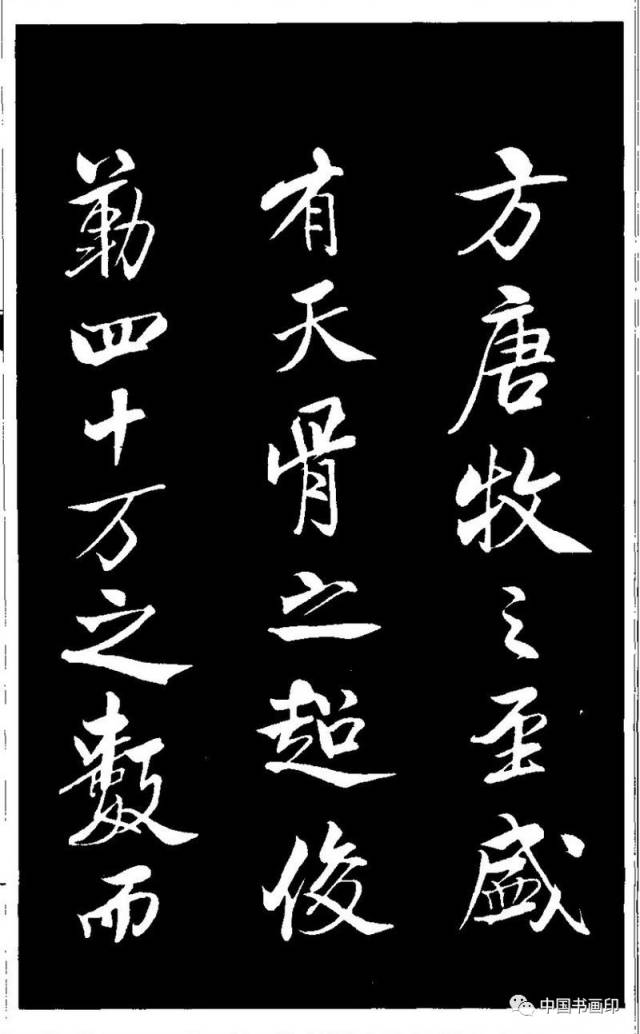 方唐牧之至盛
有天骨之超俊
勒四十万之數而
中国书画印